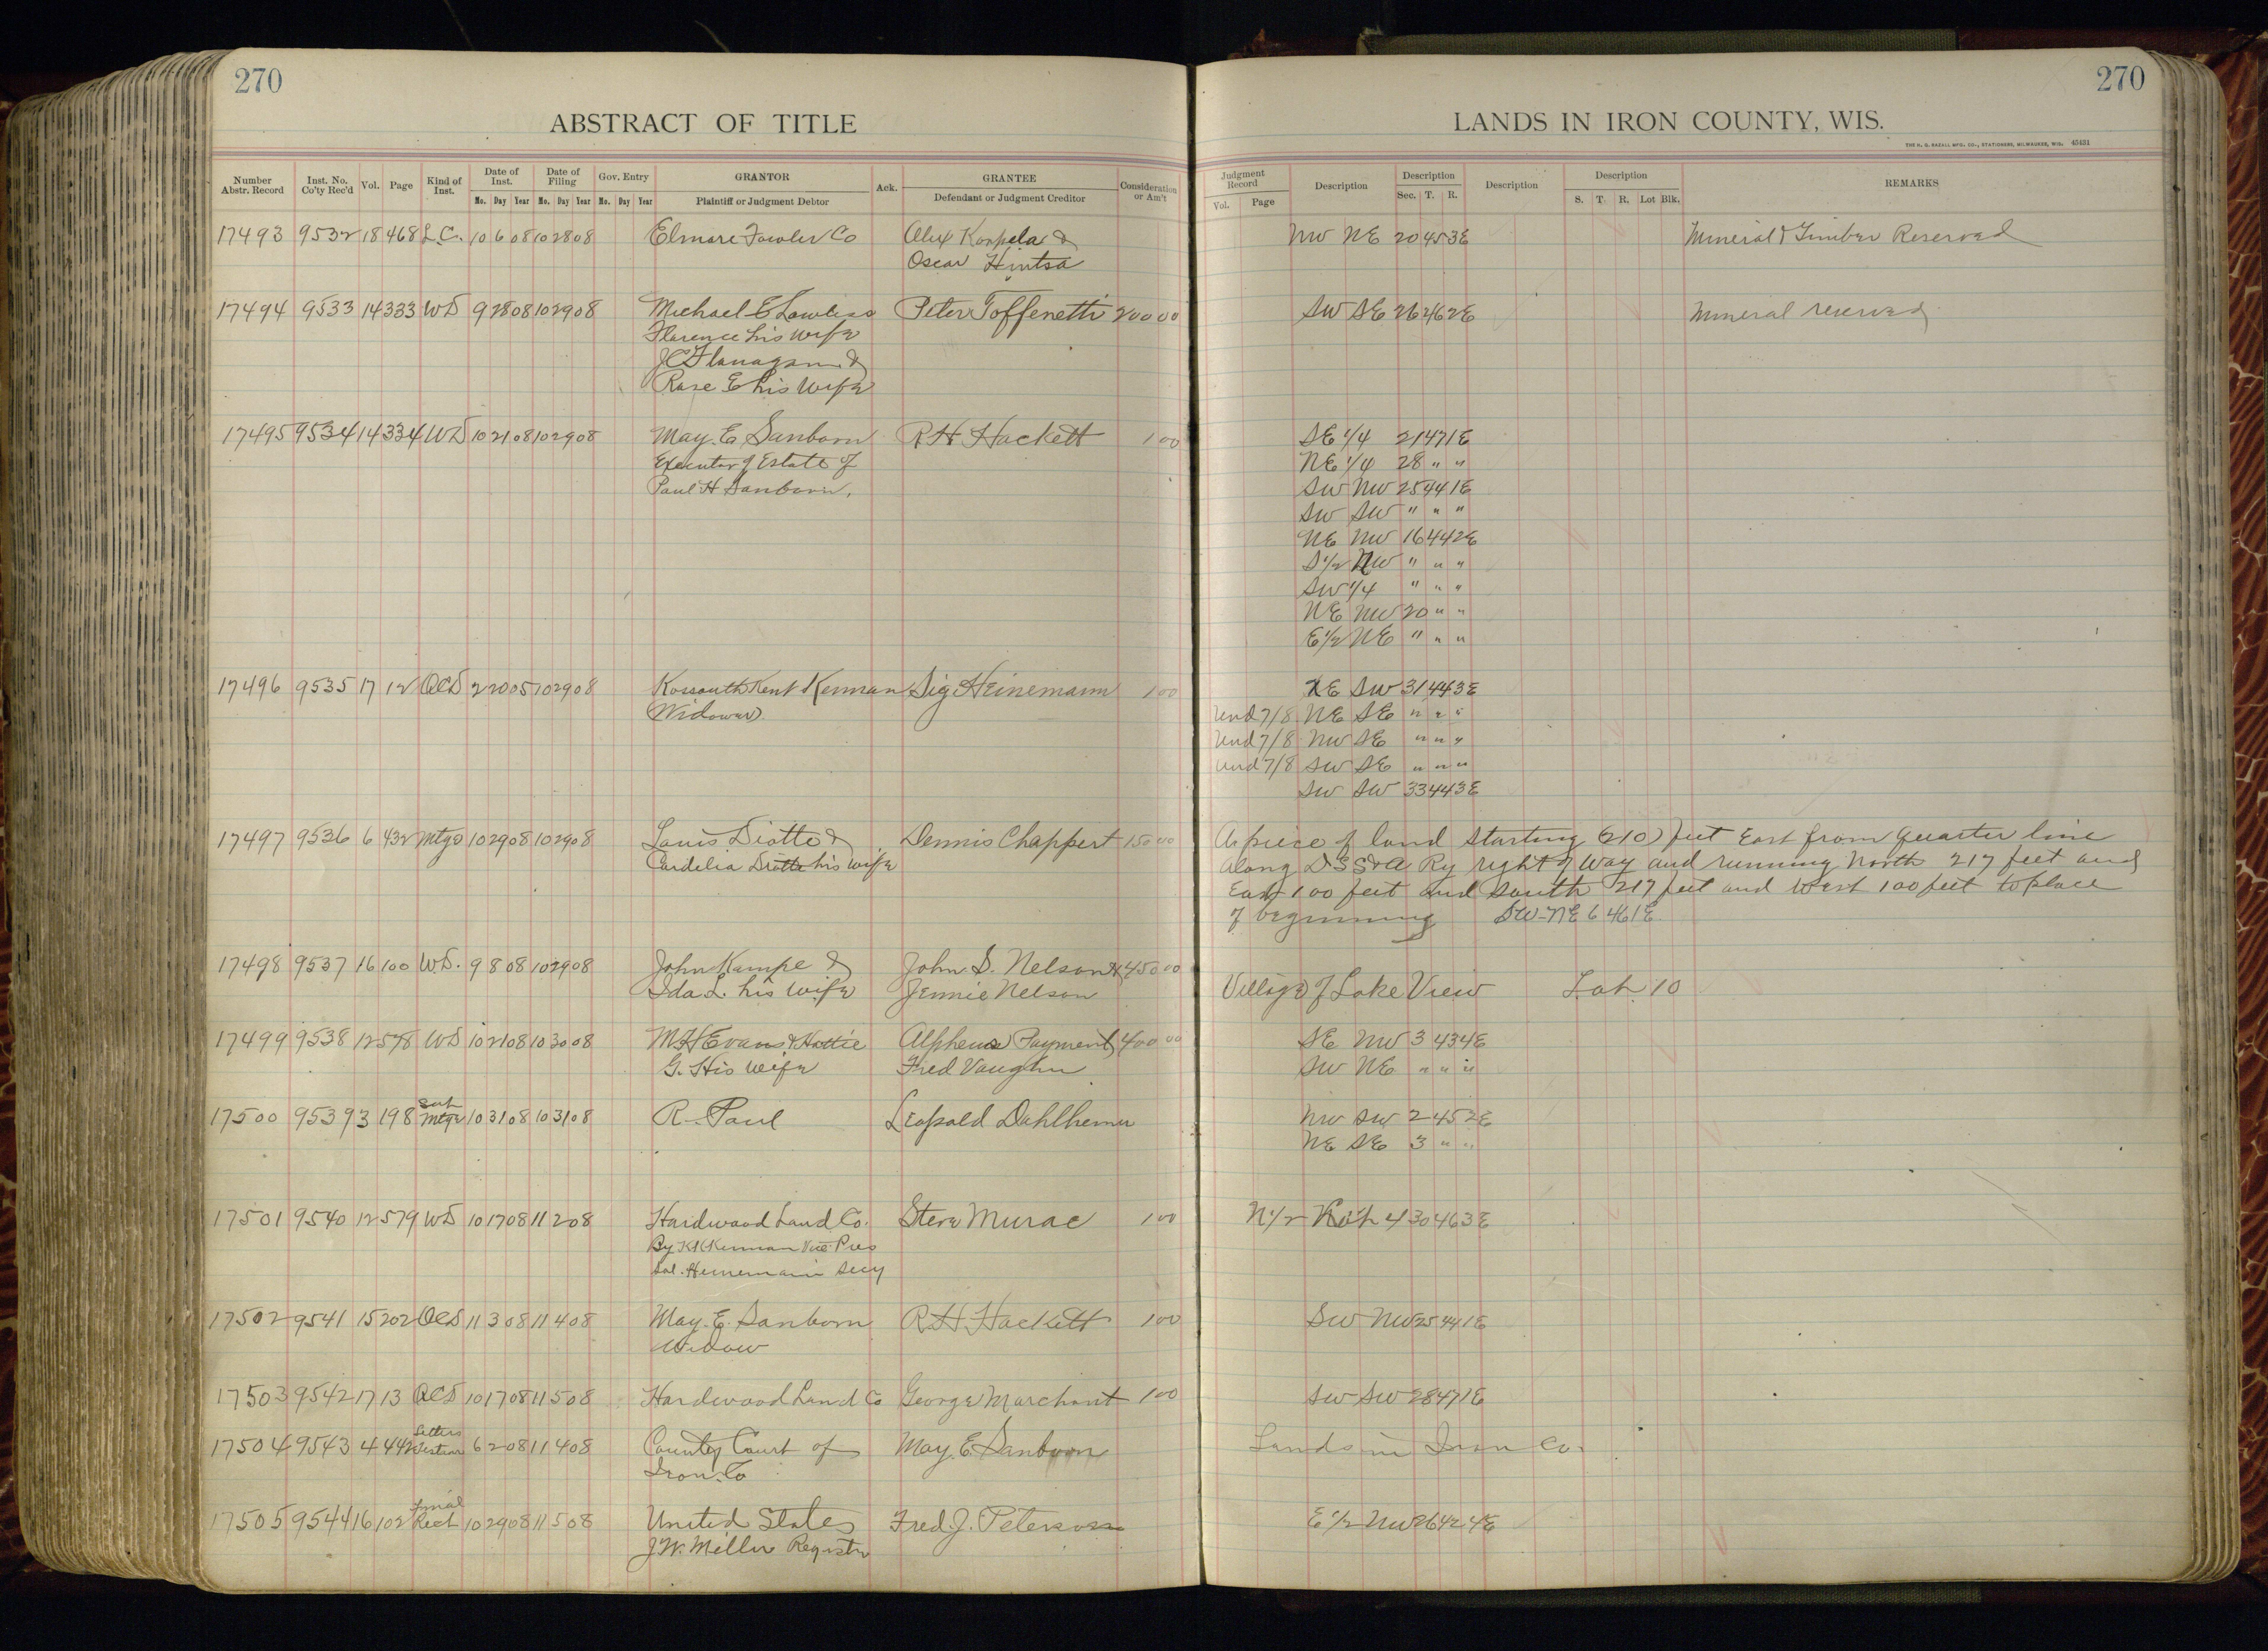 270
ABSTRACT OF TITLE
Number Abstr. Record Inst. No. Co'ty Rec'd Vol. Page Kind of Inst. Date of Inst. Mo. Day Year Date of Filing Mo. Day Year Gov. Entry Mo. Day Year GRANTOR Plaintiff or Judgment Debtor Ack. GRANTEE Defendant or Judgment Creditor Consideration or Am't
17493 9532 18 468 L.C. 10 6 08 10 28 08 Elmore Fowler Co Alex Korpela &
Oscar Hintsa
17494 9533 14 333 WD 9 28 08 10 29 08 Michael E Lawless Peter Toffenetti 200 00
Florence his wife
J C Flanagan &
Rose E his wife
17495 9534 14 334 WD 10 21 08 10 29 08 May E Sanborn R H Hackett 1 00
Executor of Estate of
Paul H Sanborn.
17496 9535 17 12 QCD 2 20 05 10 29 08 Kossouth Kent Kennan Sig Heinemann 1 00
(Widower)
17497 9536 6 432 Mtge 10 29 08 10 29 08 Louis Diotte & Dennis Chappert 150 00
Cordelia Diotte his wife
17498 9537 16 100 W.D. 9 8 08 10 29 08 John Kampe & John S. Nelson & 450 00
Ida L. his wife Jennie Nelson
17499 9538 12 578 WD 10 21 08 10 30 08 M H Evans & Hattie Alpheus Payment 400 00
G. His wife Fred Vaughn
17500 9539 3 198 Sat Mtge 10 31 08 10 31 08 R. Paul Leopold Dahlhemer
17501 9540 12 579 WD 10 17 08 11 2 08 Hardwood Land Co. Steve Murac 1 00
By K K Kennan Vice Pres
Sol. Heinemann Secy
17502 9541 15 202 QCD 11 3 08 11 4 08 May. E. Sanborn R H Hackett 1 00
Widow
17503 9542 17 13 QCD 10 17 08 11 5 08 Hardwood Land Co George Marchant 1 00
17504 9543 4 442 Letters Testmn 6 2 08 11 4 08 County Court of May. E. Sanborn
Iron Co
17505 9544 16 102 Final Rect 10 29 08 11 5 08 United States Fred J. Peterson
J W. Miller Register
270
LANDS IN IRON COUNTY, WIS.
THE H. G. RAZALL MFG. CO., STATIONERS, MILWAUKEE, WIS. 45431
Judgment Record Vol. Page Description Description Sec. T. R. Description Description S. T. R. Lot Blk. REMARKS
NW NE 20 45 3E Mineral & Timber Reserved
SW SE 26 46 2E Mineral reserved
SE 1/4 21 47 1E
NE 1/4 28 " "
SW NW 25 44 1E
SW SW " " "
NE NW 16 44 2E
S 1/2 NW " " "
SW 1/4 " " "
NE NW 20 " "
E 1/2 NE " " "
NE SW 31 44 3E
Und 7/8 NE SE " " "
Und 7/8 NW SE " " "
Und 7/8 SW SE " " "
SW SW 33 44 3E
A piece of land starting (210) feet East from Quarter line
along D S S & A Ry right of Way and running North 217 feet and
East 100 feet and South 217 feet and West 100 feet to place
of beginning SW-NE 6 46 1E
Village of Lake View Lot 10
SE NW 3 43 4E
SW NE " " "
NW SW 2 45 2E
NE SE 3 " "
N 1/2 Lot 4 30 46 3E
SW NW 25 44 1E
SW SW 28 47 1E
Lands in Iron Co.
E 1/2 NW 26 42 4E